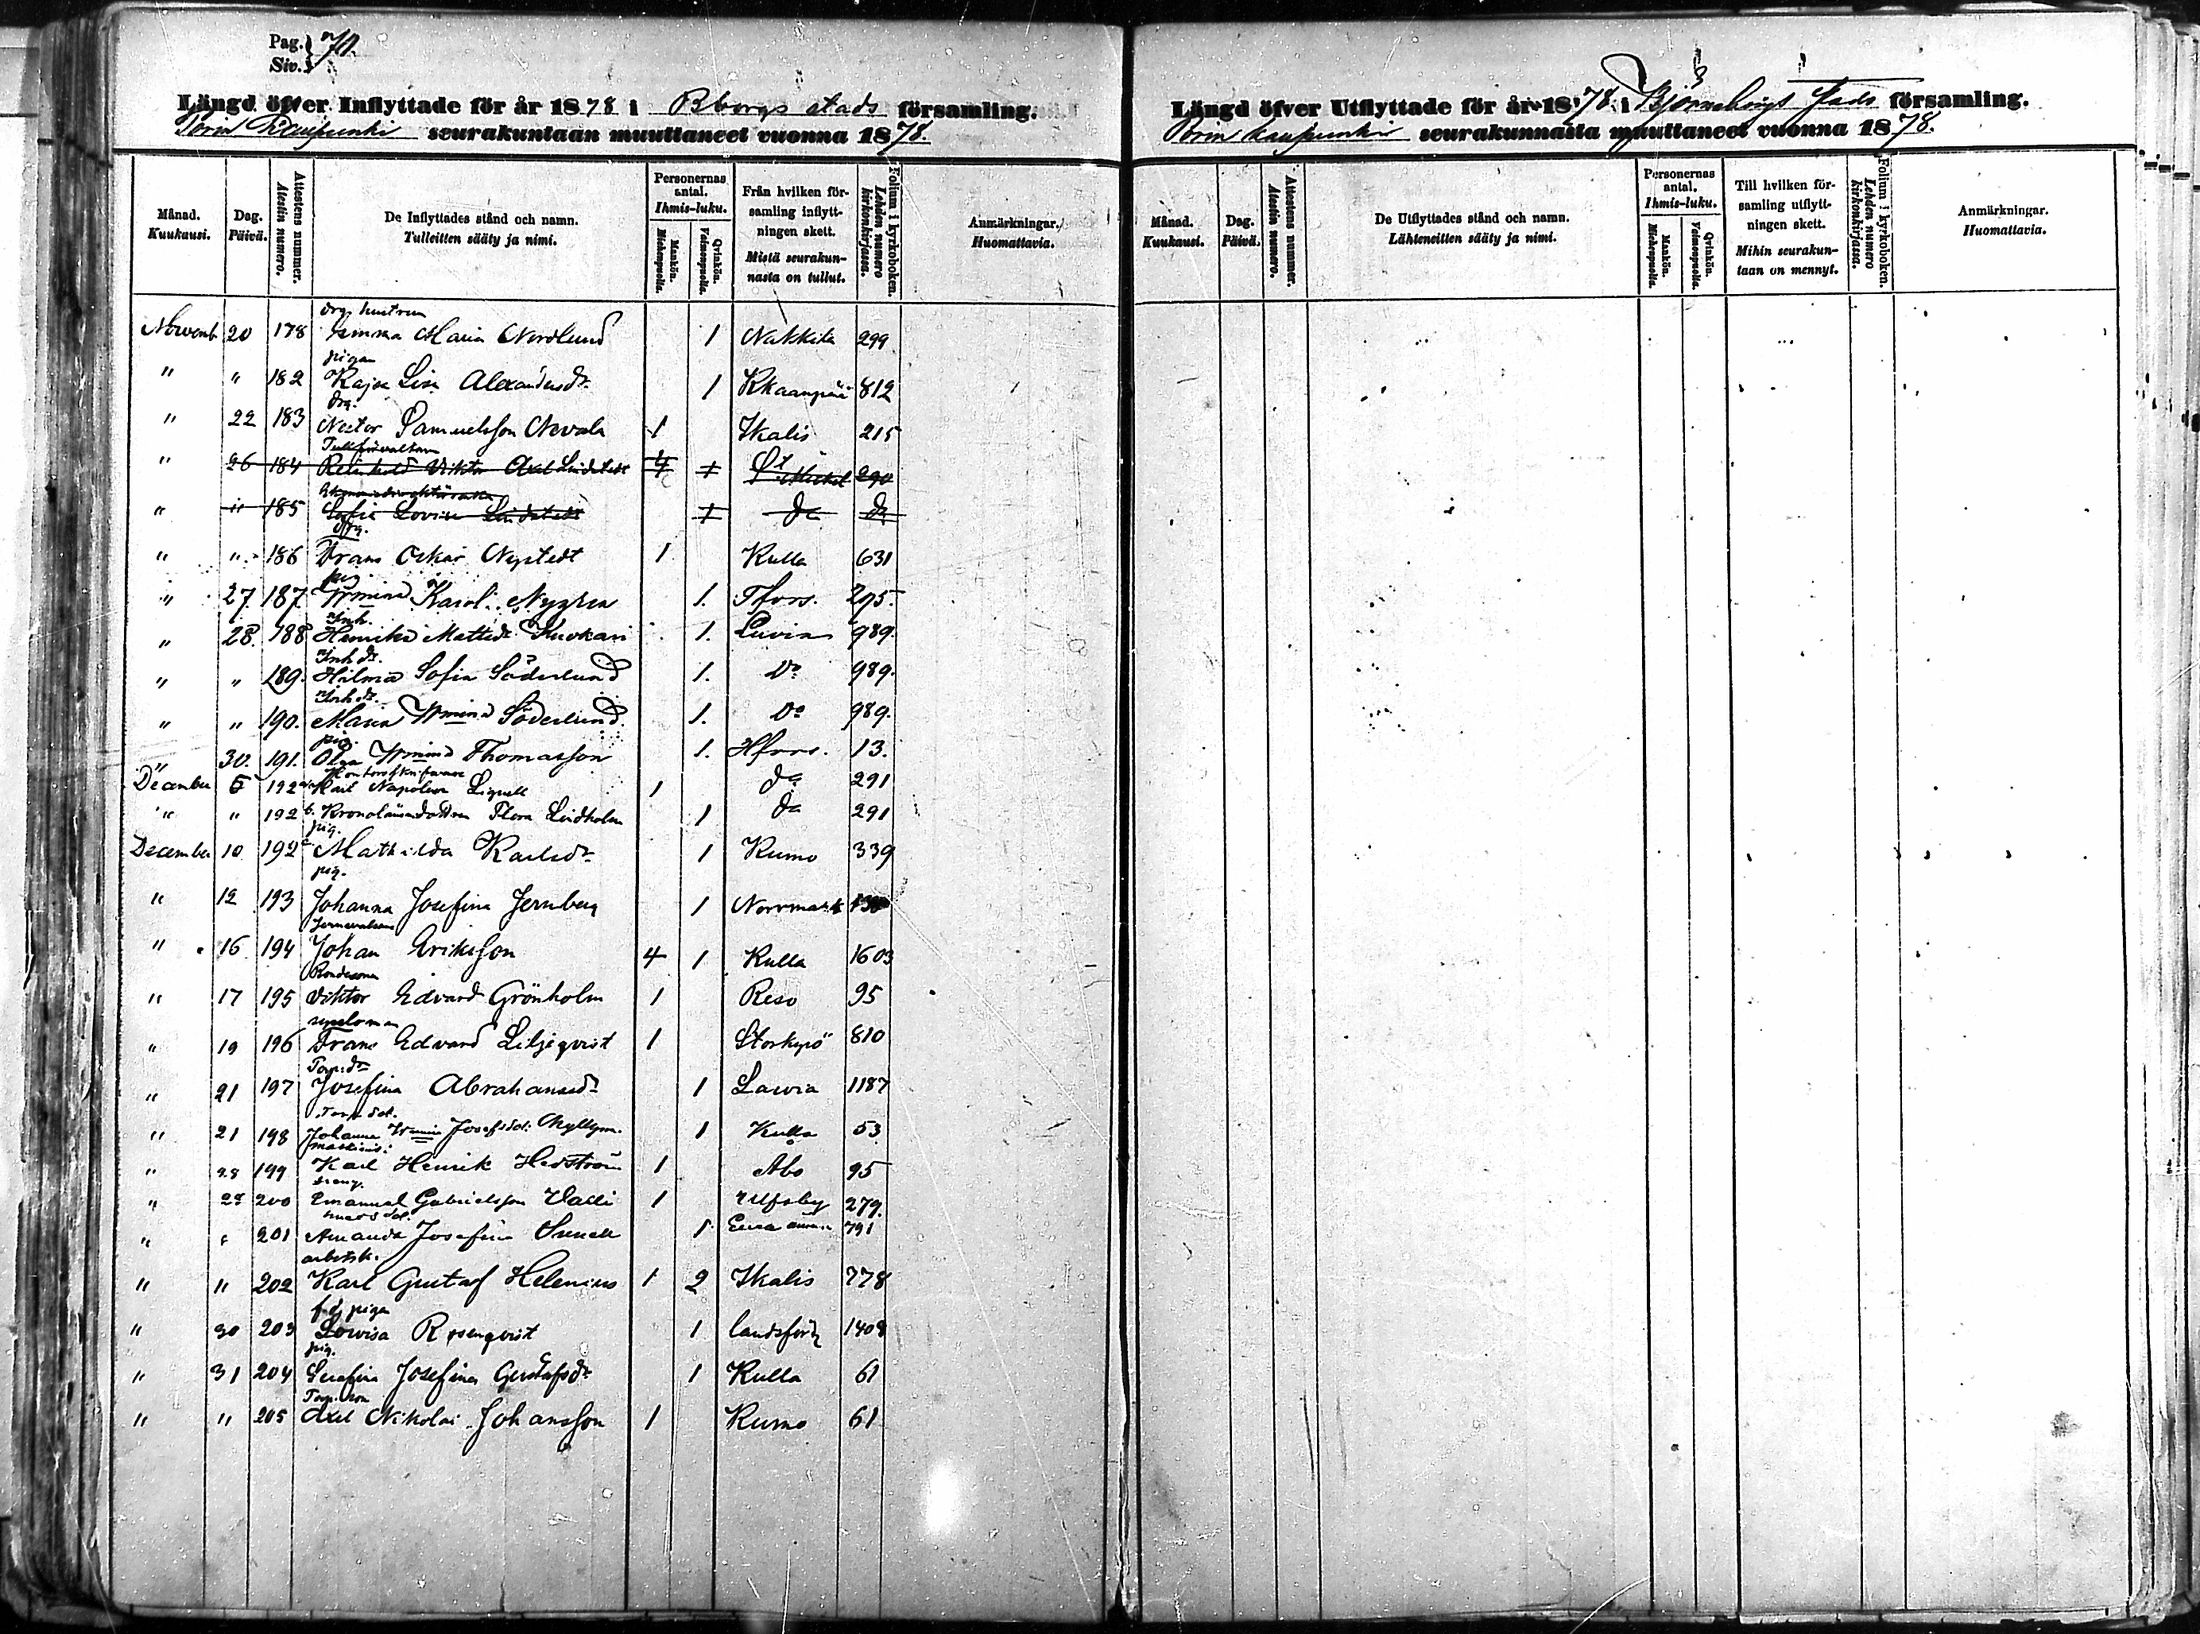 Pag. 70.
Siv.
Längd öfver Inflyttade för år 1878 i Bborgs stads församling.
Porin Kaupunki seurakuntaan muuttaneet vuonna 1878.
Månad. Kuukausi.
Dag. Päivä.
Attestens nummer. Atestin numero.
De Inflyttades stånd och namn. Tulleitten sääty ja nimi.
Personernas antal. Ihmis-luku.
Mankön. Miehenpuolia.
Qvinkön. Vaimonpuolia.
Från hvilken församling inflyttningen skett. Mistä seurakunnasta on tullut.
Folium i kyrkoboken. Lehden numero kirkonkirjassa.
Anmärkningar. Huomattavia.
drgs hustrun
Novemb 20 178 Emma Maria Nordlund 1 Nakkila 299
pigan
" " 182 Kajsa Lisa Alexandersdr 1 Kkaanpää 812
drg.
" 22 183 Nestor Samuelsson Nevala 1 Ikalis 215
Tullförvaltare
" 26 184 Reinhold Viktor Axel Lindstedt 4 1 St Michel 290
" " 185 Sofia Lovisa Lindstedt 1 do do
drg.
" " 186 Frans Oskar Nystedt 1 Kulla 631
pig.
" 27. 187. Wmina Karol. Nygren 1. Tfors. 295.
Inh.
" 28. 188 Henrika Mattsdr Kuokari 1. Luvia 989.
Inh dr.
" " 189. Hilma Sofia Söderlund 1. Do 989.
Inh dr.
" " 190. Maria Wmina Söderlund. 1. Do 989.
pig.
" 30. 191. Olga Wmina Thomasson 1. Hfors. 13.
Kontorsskrifvare
December 5 192 a Karl Napoleon Lignell 1 do 291
" " 192 b. Kronolänsm dottren Flora Lindholm 1 do 291
pig.
December 10 192 c Mathilda Karlsdr 1 Kumo 339
pig.
" 12 193 Johanna Josefina Jernberg 1 Norrmark
" 16 194 Johan Eriksson 4 1 Kulla 1603
" 17 195 Viktor Edvard Grönholm 1 Reso 95
" 19 196 Frans Edvard Liljeqvist 1 Storkyrö 810
Torp.dr
" 21 197 Josefina Abrahamsdr 1 Lavia 1187
Torp dot.
" 21 198 Johanna Wmina Josefsdot. Myllym. 1 Kulla 53
maskinis:
" 28 199 Karl Henrik Hedström 1 Åbo 95
dreng.
" 28 200 Emanuel Gabrielsson Valli 1 Ulfsby 279.
" " 201 Amanda Josefina 1 Eura 791
arbetsk.
" " 202 Karl Gustaf Helenius 1 2 Ikalis 778
f.d. pigan
" 30 203 Lovisa Rosenqvist 1 landsförs 1408
pig.
" 31 204 Serafina Josefina Gustafsdr 1 Kulla 61
Torp. son
" " 205 Axel Nikolai Johansson 1 Kumo 61
Längd öfver Utflyttade för år 1878 i Björneborgs stads församling.
Porin kaupunki seurakunnasta muuttaneet vuonna 1878.
Månad. Kuukausi.
Dag. Päivä.
Attestens nummer. Atestin numero.
De Utflyttades stånd och namn. Lähteneitten sääty ja nimi.
Personernas antal. Ihmis-luku.
Mankön. Miehenpuolia.
Qvinkön. Vaimonpuolia.
Till hvilken församling utflyttningen skett. Mihin seurakuntaan on mennyt.
Folium i kyrkoboken. Lehden numero kirkonkirjassa.
Anmärkningar. Huomattavia.